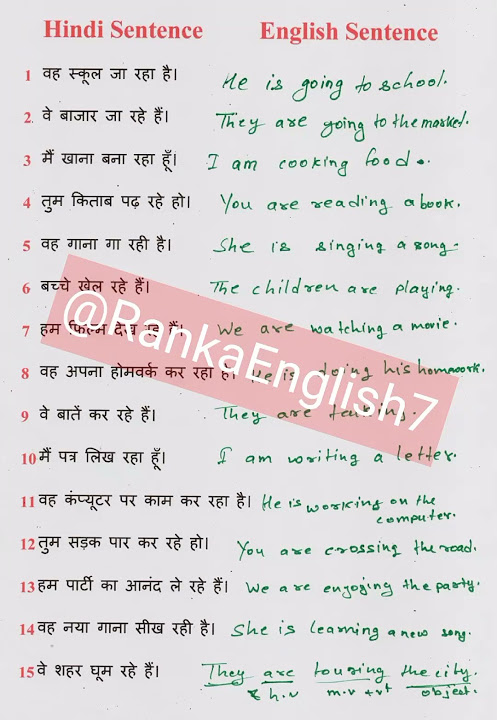 Hindi Sentence English Sentence
1 वह स्कूल जा रहा है। He is going to school.
2 वे बाजार जा रहे हैं। They are going to the market.
3 मैं खाना बना रहा हूँ। I am cooking food.
4 तुम किताब पढ़ रहे हो। You are reading a book.
5 वह गाना गा रही है। She is singing a song.
6 बच्चे खेल रहे हैं। The children are playing.
7 हम फिल्म देख रहे हैं। We are watching a movie.
8 वह अपना होमवर्क कर रहा है। He is doing his homework.
9 वे बातें कर रहे हैं। They are talking.
10 मैं पत्र लिख रहा हूँ। I am writing a letter.
11 वह कंप्यूटर पर काम कर रहा है। He is working on the
computer.
12 तुम सड़क पार कर रहे हो। You are crossing the road.
13 हम पार्टी का आनंद ले रहे हैं। We are enjoying the party.
14 वह नया गाना सीख रही है। She is learning a new song.
15 वे शहर घूम रहे हैं। They are touring the city.
h.v m.v + v1 object.
@RankaEnglish7